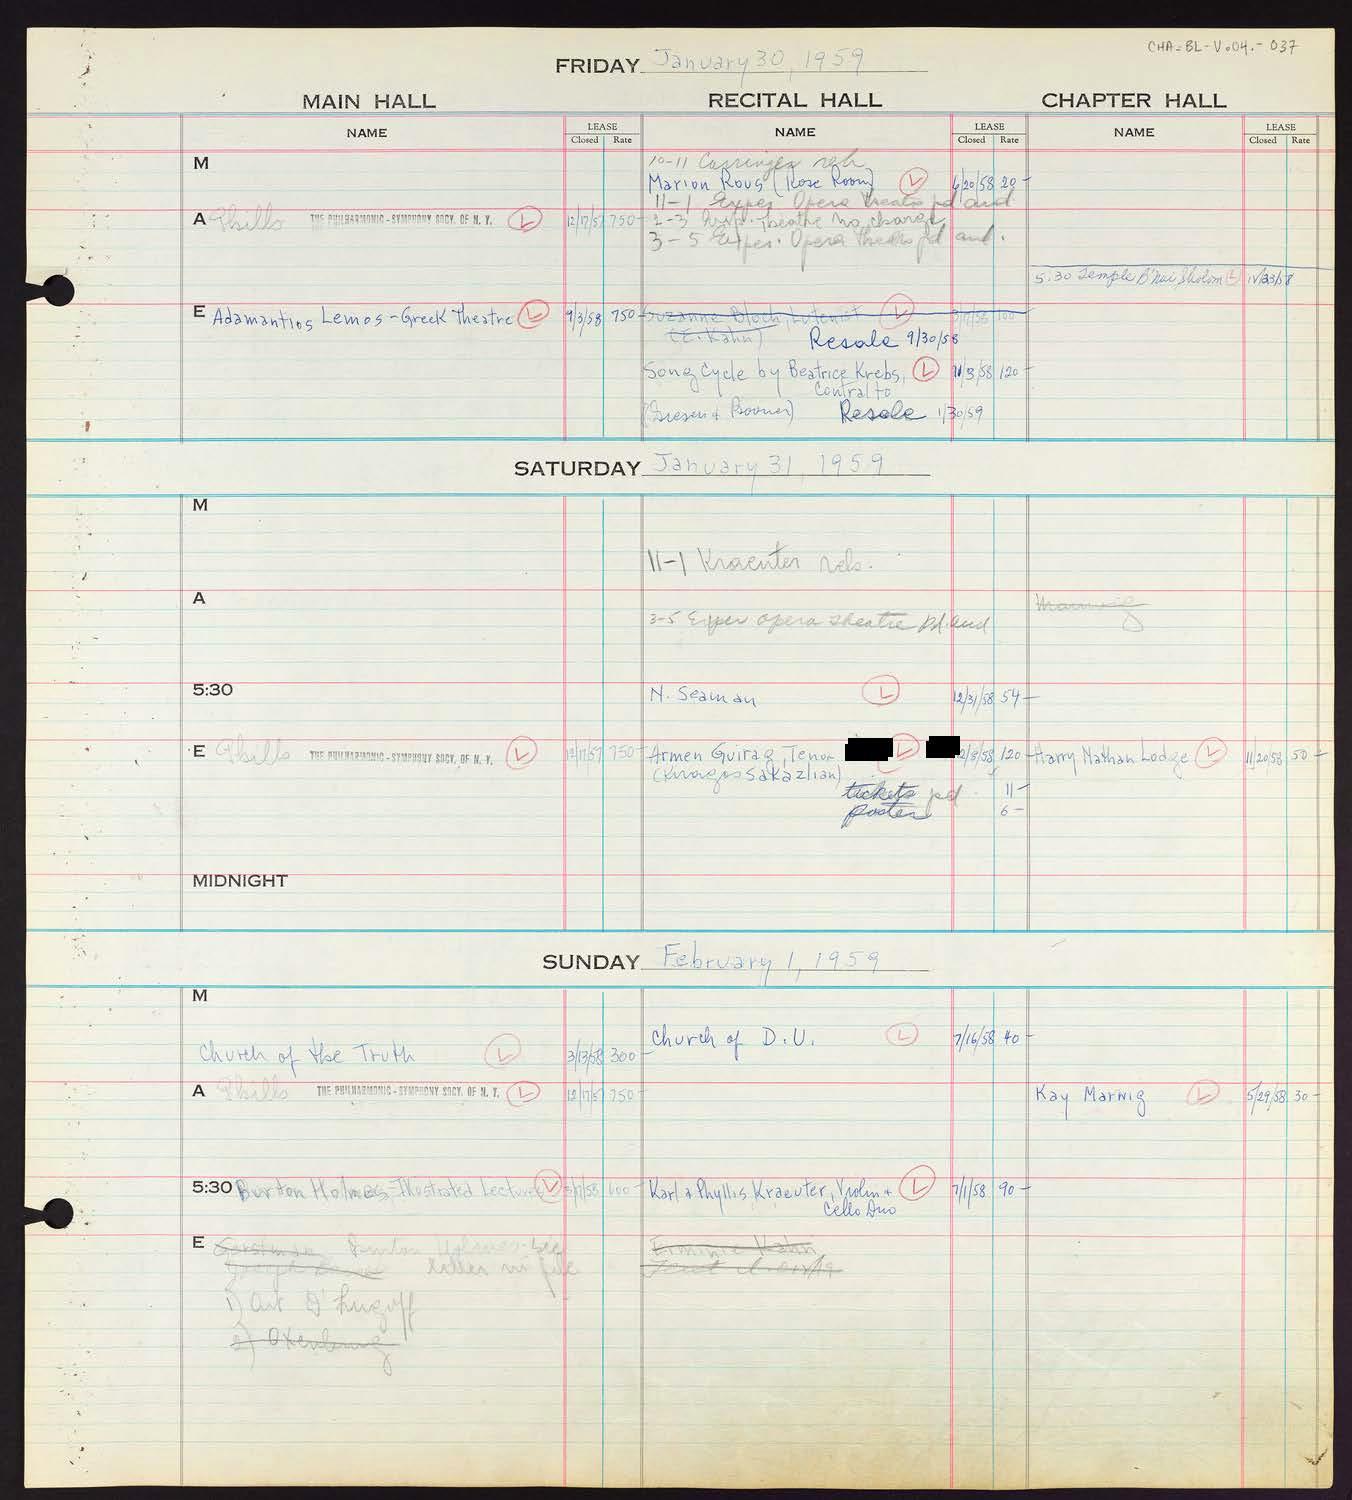 CHA-BL-V.04.-037
FRIDAY January 30, 1959
MAIN HALL RECITAL HALL CHAPTER HALL
NAME LEASE NAME LEASE NAME LEASE
Closed Rate Closed Rate Closed Rate
M 10-11 reh
Marion Rous (Rose Room) L 6/20/58 20-
11-1 Exper. Opera Theatre pd and
A Phills THE PHILHARMONIC-SYMPHONY SOCY. OF N. Y. L 12/17/57 750- 2-3 Theatre no charge
3-5 Exper. Opera Theatre pd and.
5:30 Temple B'nai Sholom L
E Adamantios Lemos-Greek Theatre L 9/3/58 750- Suzanne Bloch, Lutenist L 100-
(E. Kahn) Resale 9/30/58
Song Cycle by Beatrice Krebs, L 11/3/58 120-
Contralto
Resale 1/30/59
SATURDAY January 31, 1959
M
11-1 Kraeuter reh.
A
3-5 Exper opera theatre pd and
5:30 N. Seaman L 12/31/58 54-
E Phills THE PHILHARMONIC-SYMPHONY SOCY. OF N. Y. L 12/17/57 750- Armen Guirag, Tenor L 120- Harry Nathan Lodge L 11/20/58 50-
(Kiragos Sakazlian)
tickets pd. 11-
poster 6-
MIDNIGHT
SUNDAY February 1, 1959
M
Church of D.U. L 7/16/58 40-
Church of the Truth L 3/13/58 300-
A Phills THE PHILHARMONIC-SYMPHONY SOCY. OF N. Y. L 12/17/57 750- Kay Marwig L 5/29/58 30-
5:30 Burton Holmes, Illustrated Lecture L 600- Karl & Phyllis Kraeuter, Violin & L 7/1/58 90-
Cello Duo
E Burton Holmes-see Erminie Kahn
letter in file
1) Art D'Lugoff
2)